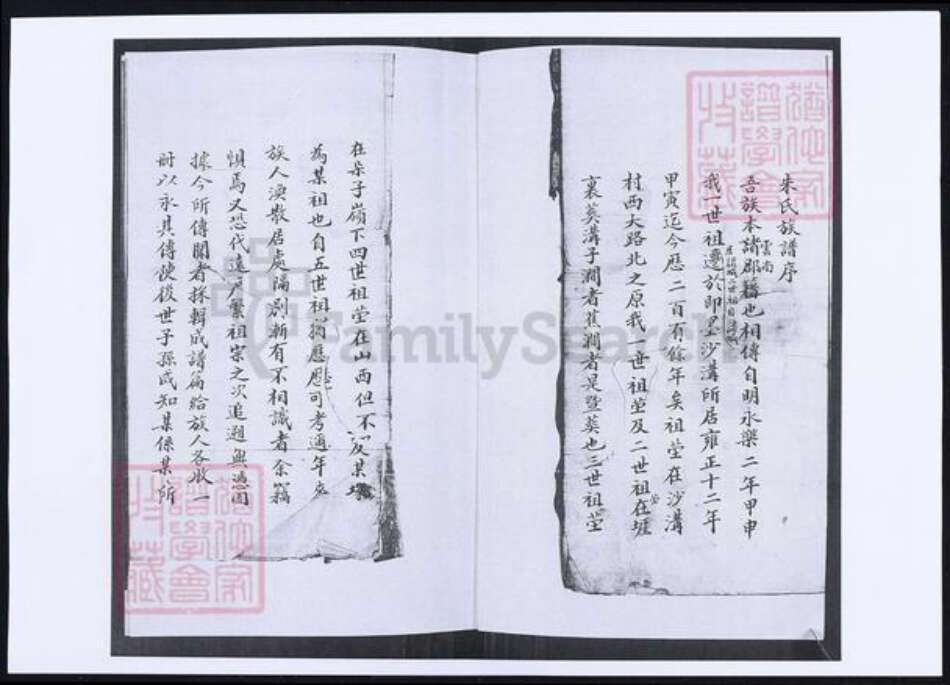 朱氏族譜序
吾族本諸郡籍也相傳自明永樂二年甲申
雲南
我一世祖遷於即墨沙溝所居雍正十二年
甲寅迄今歷二百有餘年矣祖塋在沙溝
村西大路北之原我一世祖塋及二世祖在堐
塋
裏葬溝子澗者蕉澗者是暨葬也三世祖塋
在朵子嶺下四世祖塋在山西但不
某
為某祖也自五世祖歷歷可考適年
族人渙散居處隔別漸有不相識者余竊
惧焉又恐代遠戶繁祖宗之次追遡無憑因
據今所傳聞者採輯成譜篇給族人各收一
冊以永其傳使後世子孫咸知某係某所
猶他家譜學會收藏
猶他家譜學會收藏
FamilySearch